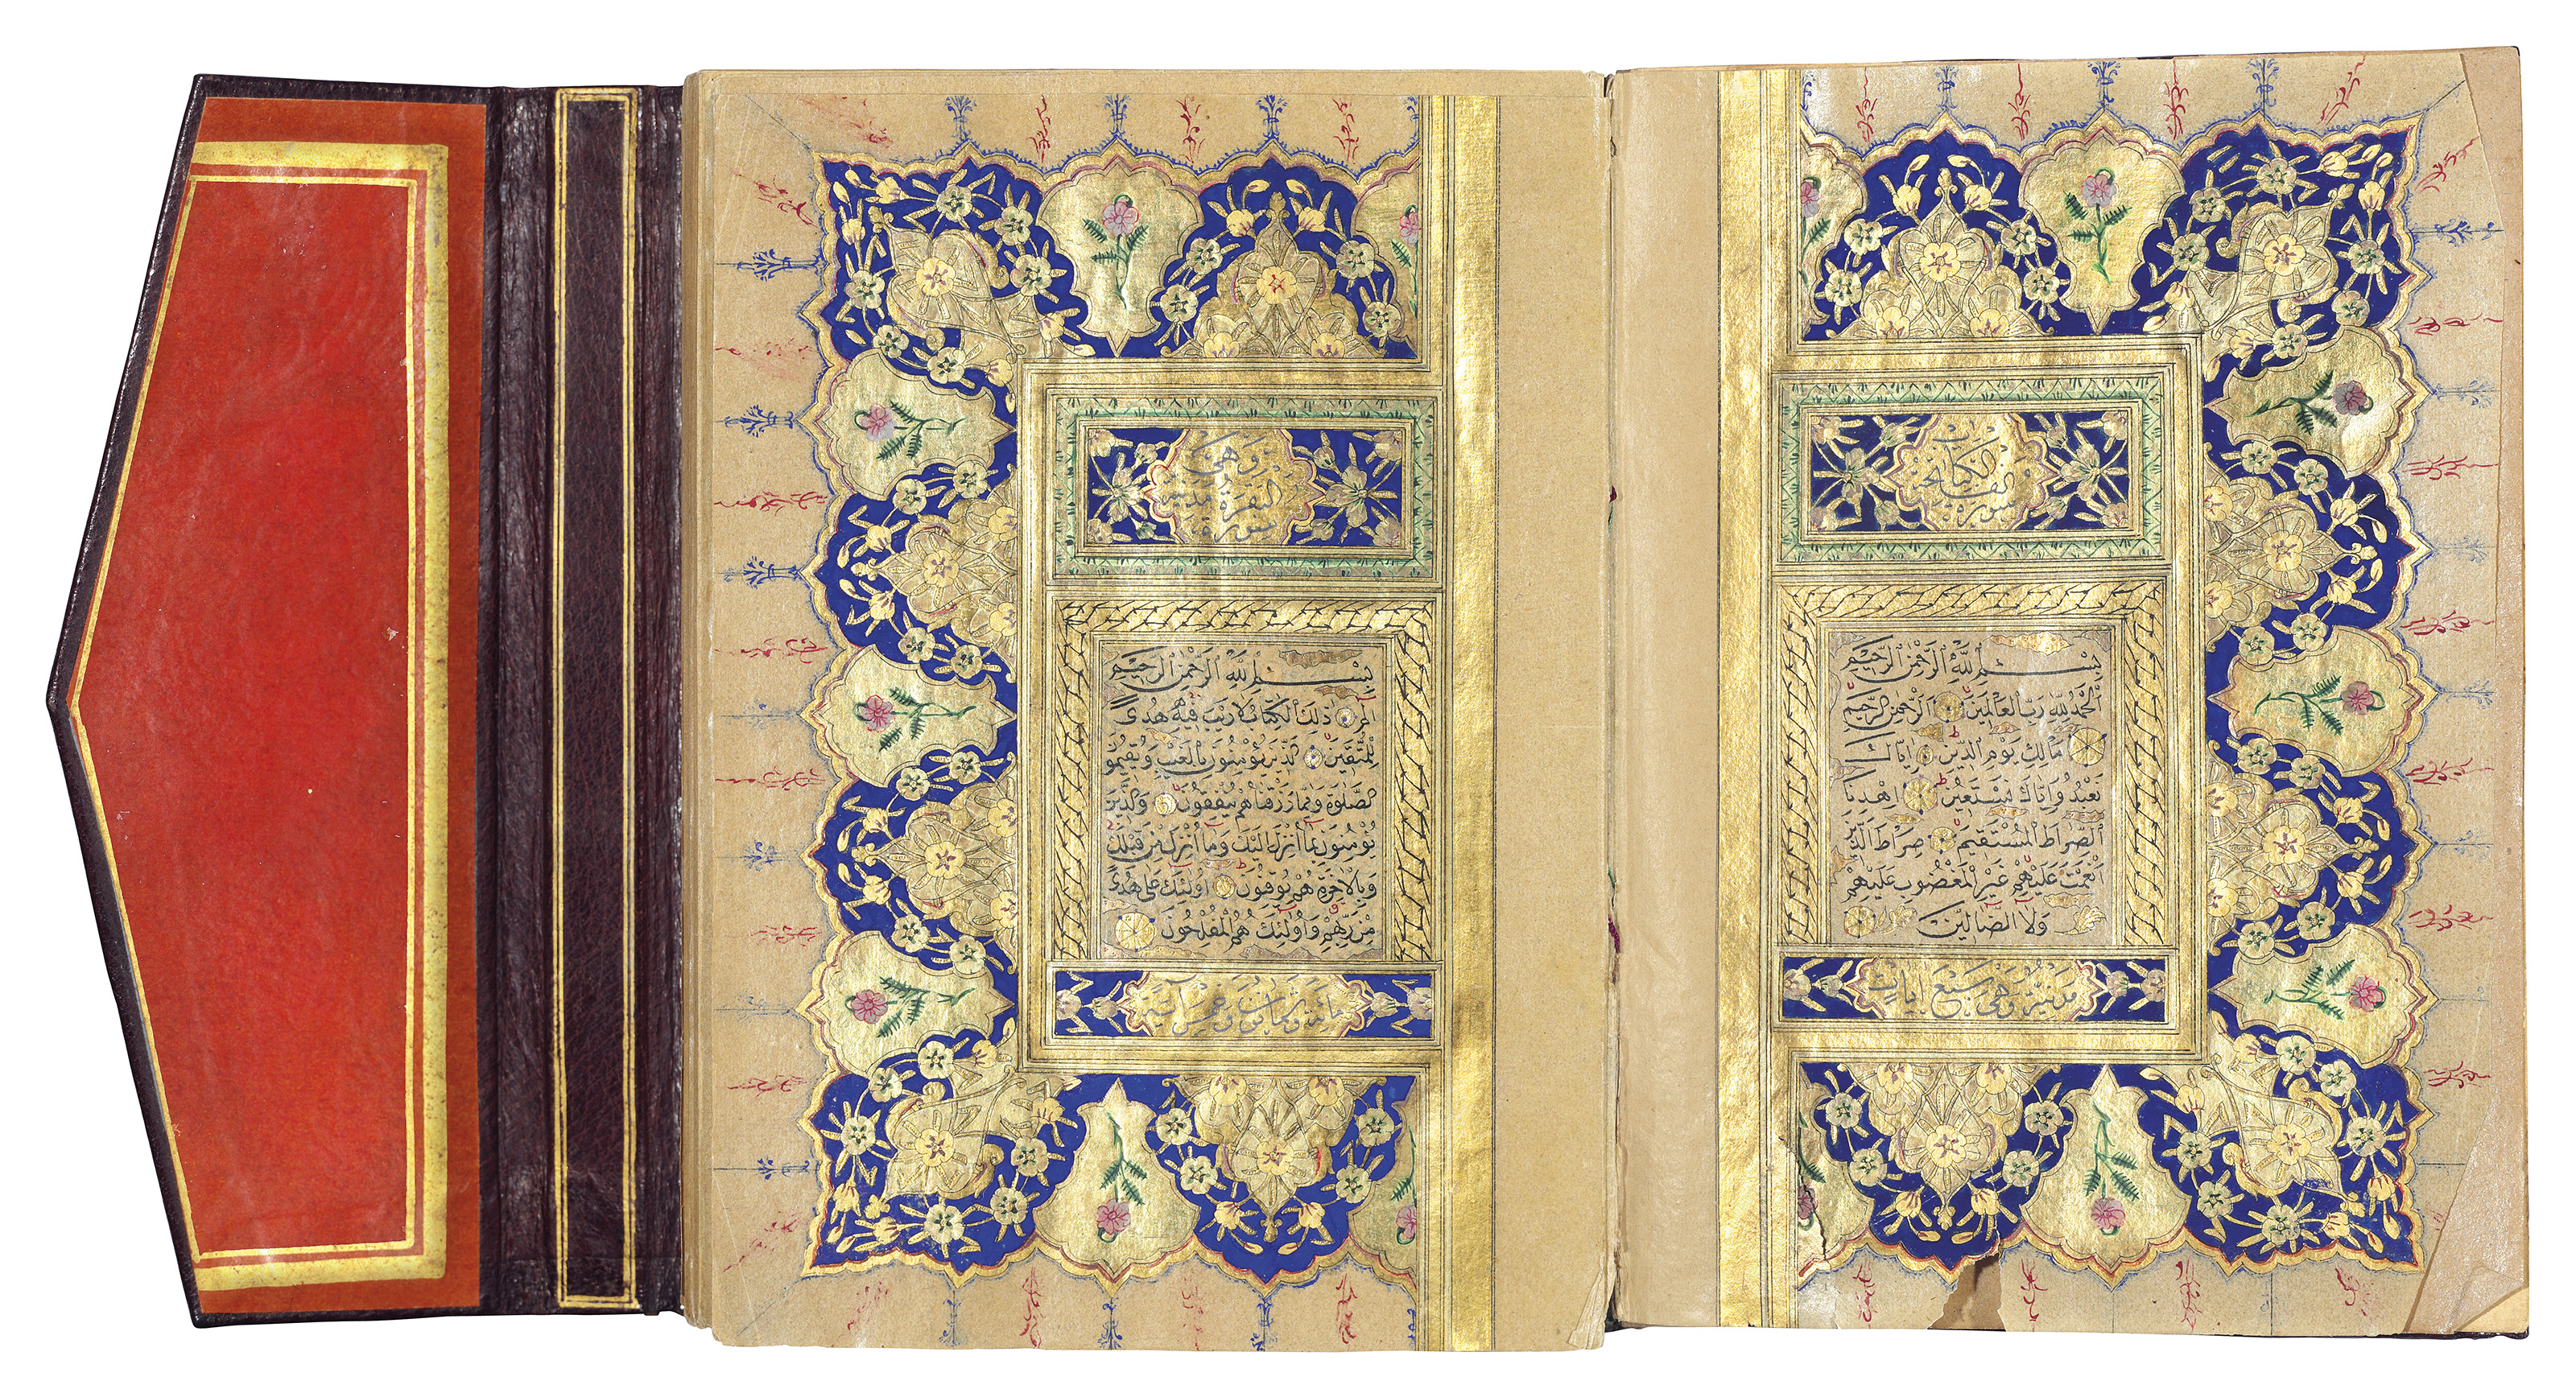 سُورَةُ الفَاتِحَةِ الكِتَابِ
بِسْمِ اللّٰهِ الرَّحْمٰنِ الرَّحِيمِ
اَلْحَمْدُ لِلّٰهِ رَبِّ الْعَالَمِينَ اَلرَّحْمٰنِ الرَّحِيمِ
مَالِكِ يَوْمِ الدِّينِ اِيَّاكَ
نَعْبُدُ وَاِيَّاكَ نَسْتَعِينُ اِهْدِنَا
الصِّرَاطَ الْمُسْتَقِيمَ صِرَاطَ الَّذِينَ
اَنْعَمْتَ عَلَيْهِمْ غَيْرِ الْمَغْضُوبِ عَلَيْهِمْ
وَلَا الضَّالِّينَ
مَدَنِيَّةٌ وَهِيَ سَبْعُ اٰيَاتٍ
سُورَةُ البَقَرَةِ مَدَنِيَّةٌ وَهِيَ
بِسْمِ اللّٰهِ الرَّحْمٰنِ الرَّحِيمِ
الم ذٰلِكَ الْكِتَابُ لَا رَيْبَ فِيهِ هُدًى
لِلْمُتَّقِينَ الَّذِينَ يُؤْمِنُونَ بِالْغَيْبِ وَيُقِيمُونَ
الصَّلٰوةَ وَمِمَّا رَزَقْنَاهُمْ يُنْفِقُونَ وَالَّذِينَ
يُؤْمِنُونَ بِمَا اُنْزِلَ اِلَيْكَ وَمَا اُنْزِلَ مِنْ قَبْلِكَ
وَبِالْاٰخِرَةِ هُمْ يُوقِنُونَ اُولٰئِكَ عَلٰى هُدًى
مِنْ رَبِّهِمْ وَاُولٰئِكَ هُمُ الْمُفْلِحُونَ